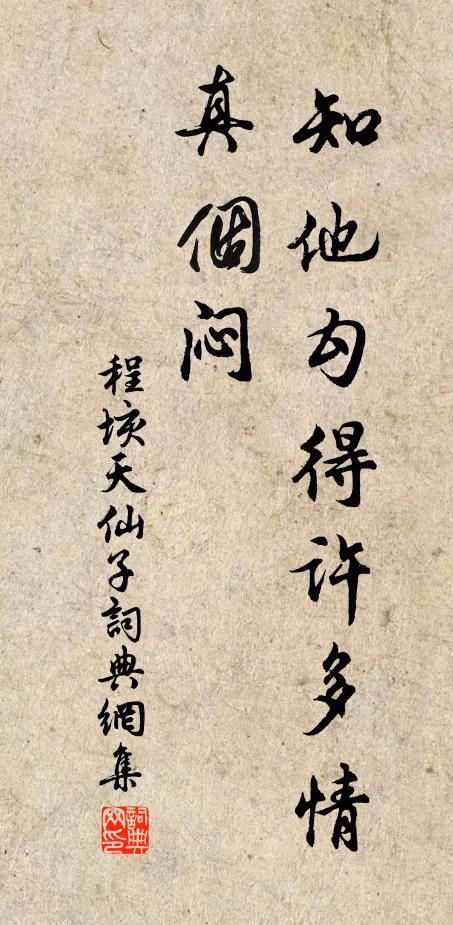 知他勾得許多情
真個悶
程垓天仙子詞典網集
詞典网印